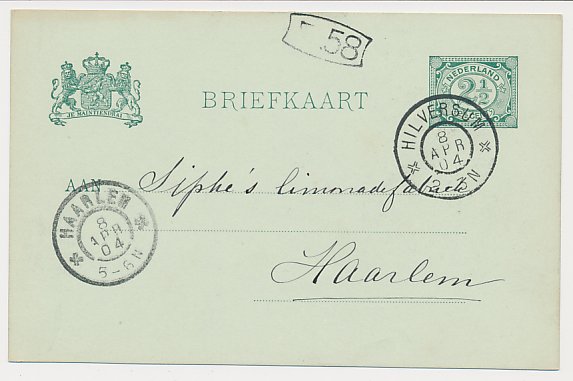 58
NEDERLAND
2½
JE MAINTIENDRAI
BRIEFKAART
HILVERSUM
8
APR
04
AAN Siphe's limonadefabriek
HAARLEM
8
APR
04
5-6N
Haarlem